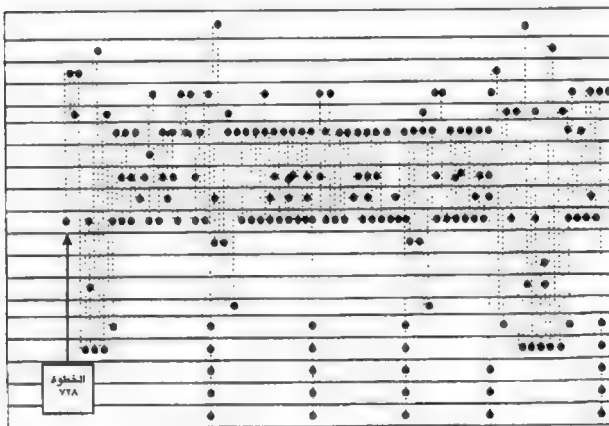 الخطوة
٧٢٨